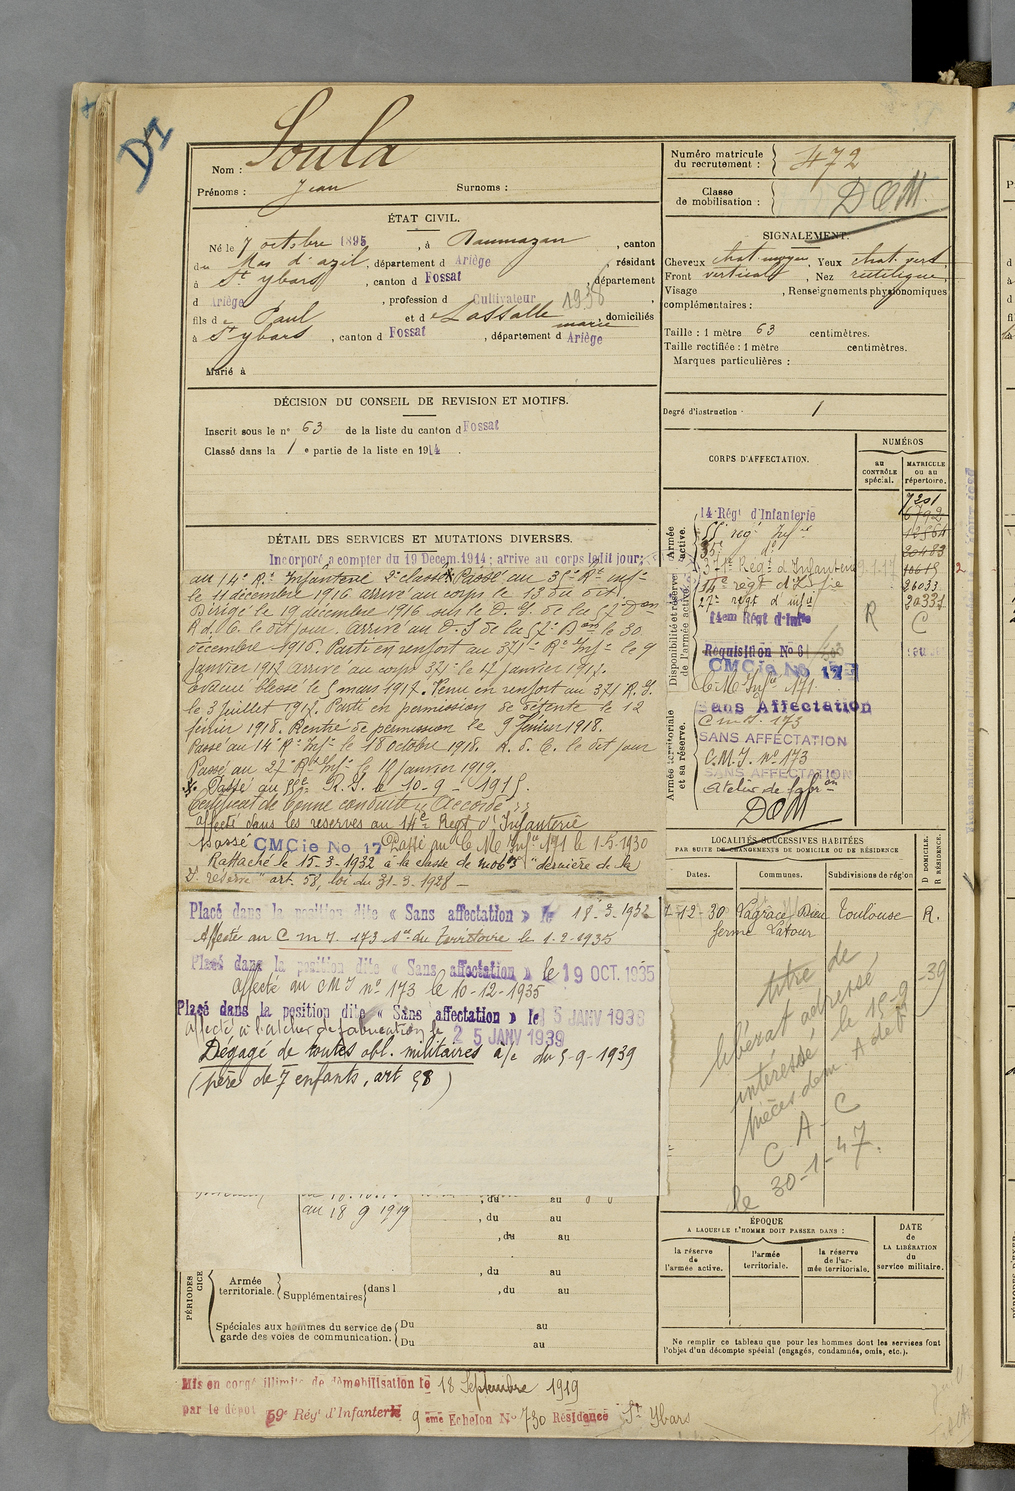 D1
Nom : Soula
Prénoms : Jean Surnoms :
ÉTAT CIVIL.
Né le 7 octobre 1895, à Daumazan, canton
du Mas d'azil, département d Ariège, résidant
à St ybars, canton d Fossat, département
d Ariège, profession d Cultivateur 1938,
fils de Paul et de Lassalle marie, domiciliés
à St ybars, canton d Fossat, département d Ariège
Marié à
DÉCISION DU CONSEIL DE REVISION ET MOTIFS.
Inscrit sous le n° 63 de la liste du canton d Fossat
Classé dans la 1e partie de la liste en 1914.
DÉTAIL DES SERVICES ET MUTATIONS DIVERSES.
Incorporé a compter du 19 Décem. 1914; arrive au corps ledit jour;
au 14e Rt Infanterie 2e classe. Passé au 35e Rt Infie
le 11 décembre 1916 arrivé au corps le 13 du dit.
Dirigé le 19 décembre 1916 sur le D. I. de la 57e Don
R. d. C. le dit jour. Arrivé au D. I. de la 57e Don le 30
décembre 1916. Parti en renfort au 371e Rt Infie le 9
janvier 1917 arrivé au corps 371e le 17 janvier 1917.
Evacué blessé le 5 mars 1917. Venu en renfort au 371 R. I.
le 3 Juillet 1917. Parti en permission de détente le 12
février 1918. Rentré de permission le 9 février 1918.
Passé au 14e Rt Infie le 18 octobre 1918. R. d. C. le dit jour
Passé au 27e Rt Infie le 10 janvier 1919.
Passé au R. I. le 10-9-1919.
Certificat de bonne conduite "Accordé"
affecté dans les réserves au 14e Régt d'Infanterie
Passé CMCie No 17 Passé au C Me Infie 171 le 1-5-1930
Rattaché le 15-3-1932 à la classe de mobon "dernière de la
2e réserve" art. 58, loi du 31-3-1928 —
Placé dans la position dite « Sans affectation » le 18-3-1932
Affecté au C. M. I. 173 Son du Territoire le 1-2-1935
Placé dans la position dite « Sans affectation » le 19 OCT. 1935
affecté au CMI n° 173 le 10-12-1935
Placé dans la position dite « Sans affectation » le 15 JANV 1938
affecté à l'atelier de fabrication le 25 JANV 1939
Dégagé de toutes obl. militaires a/c du 5-9-1939
(père de 7 enfants, art 58)
au 18 9 1919
, du au
, du au
, du au
, du au
PÉRIODES
CICE
Armée territoriale. Supplémentaires dans l , du au
Spéciales aux hommes du service de garde des voies de communication. Du au
Du au
Mis en congé illimité de démobilisation le 18 Septembre 1919
par le dépôt 59e Régt d'Infanterie 9ème Echelon No 730 Résidence St Ybars
Numéro matricule du recrutement : 472
Classe de mobilisation : DOM
SIGNALEMENT.
Cheveux chat. moyen, Yeux chat. vert
Front vertical, Nez rectiligne
Visage , Renseignements physionomiques
complémentaires :
Taille : 1 mètre 63 centimètres.
Taille rectifiée : 1 mètre centimètres.
Marques particulières :
Degré d'instruction : 1
CORPS D'AFFECTATION.
NUMÉROS
au CONTRÔLE spécial.
MATRICULE ou au répertoire.
Armée active.
Disponibilité et réserve de l'armée active.
Armée territoriale et sa réserve.
14 Régt d'Infanterie 7201
35e do
371e Régt d'Infanterie
14e régt d'Infie 26033
27e régt d'infie 20331
14em Régt d'Infie R C
Réquisition No 6
CMCie No 17
C. Me Infie 171.
Sans Affectation
C. M. I. 173
SANS AFFECTATION
C.M.I. n° 173
SANS AFFECTATION
Atelier de fabron
DOM
LOCALITÉS SUCCESSIVES HABITÉES
PAR SUITE DE CHANGEMENTS DE DOMICILE OU DE RÉSIDENCE
D DOMICILE. R RÉSIDENCE.
Dates. Communes. Subdivisions de région
7-12-30 Lagrace Dieu Toulouse R.
ferme Latour
titre de
libérat adressé
intéressé le 15-9-39
pièces dem. A de P
C. A - C
le 30-1-47.
ÉPOQUE
A LAQUELLE L'HOMME DOIT PASSER DANS :
la réserve de l'armée active.
l'armée territoriale.
la réserve de l'armée territoriale.
DATE de LA LIBÉRATION du service militaire.
Ne remplir ce tableau que pour les hommes dont les services font
l'objet d'un décompte spécial (engagés, condamnés, omis, etc.).